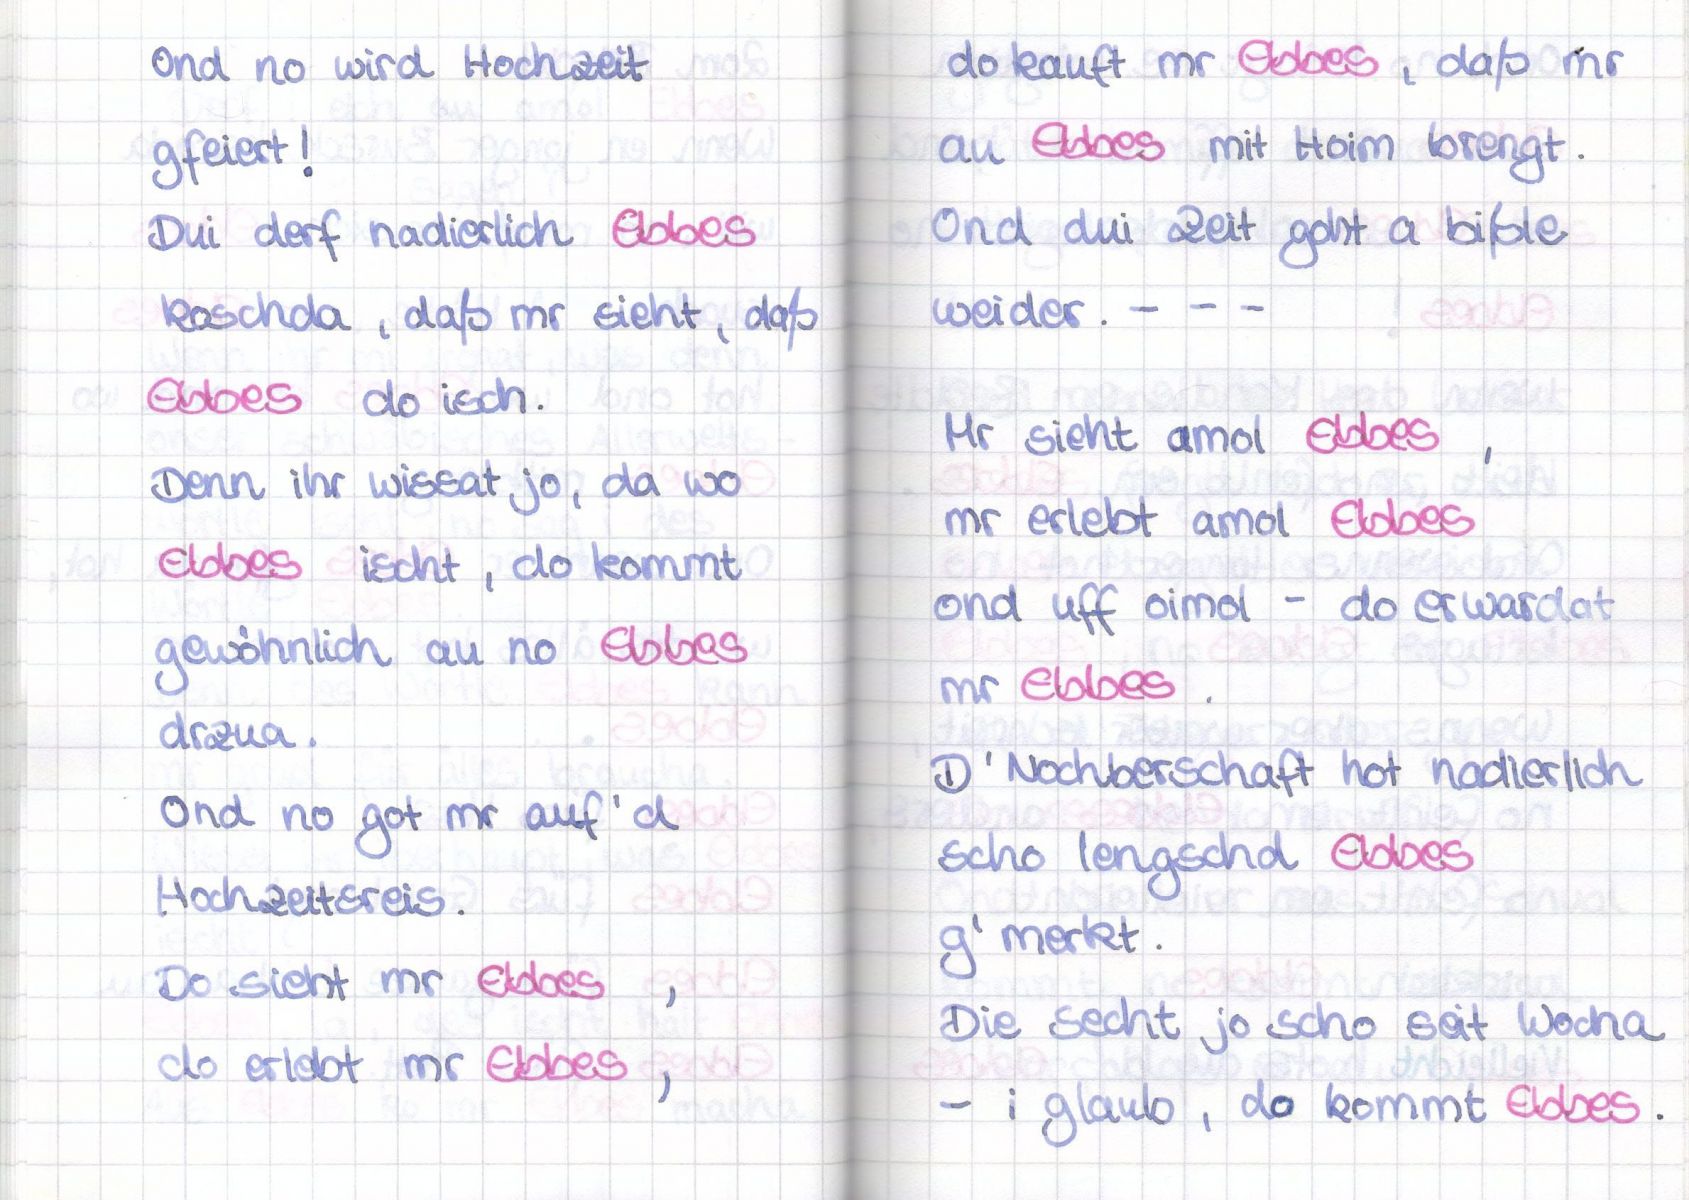 Ond no wird Hochzeit
gfeiert!
Dui derf nadierlich Ebbes
koschda, daß mr sieht, daß
Ebbes do isch.
Denn ihr wissat jo, da wo
Ebbes ischt, do kommt
gewöhnlich au no Ebbes
drzua.
Ond no got mr auf'd
Hochzeitsreis.
Do sieht mr Ebbes,
do erlebt mr Ebbes,
do kauft mr Ebbes, daß mr
au Ebbes mit Hoim brengt.
Ond dui Zeit goht a bißle
weider. - - -
Mr sieht amol Ebbes,
mr erlebt amol Ebbes
ond uff oimol - do erwardat
mr Ebbes.
D'Nochberschaft hot nadierlich
scho lengschd Ebbes
g'merkt.
Die secht jo scho seit Wocha
- i glaub, do kommt Ebbes.